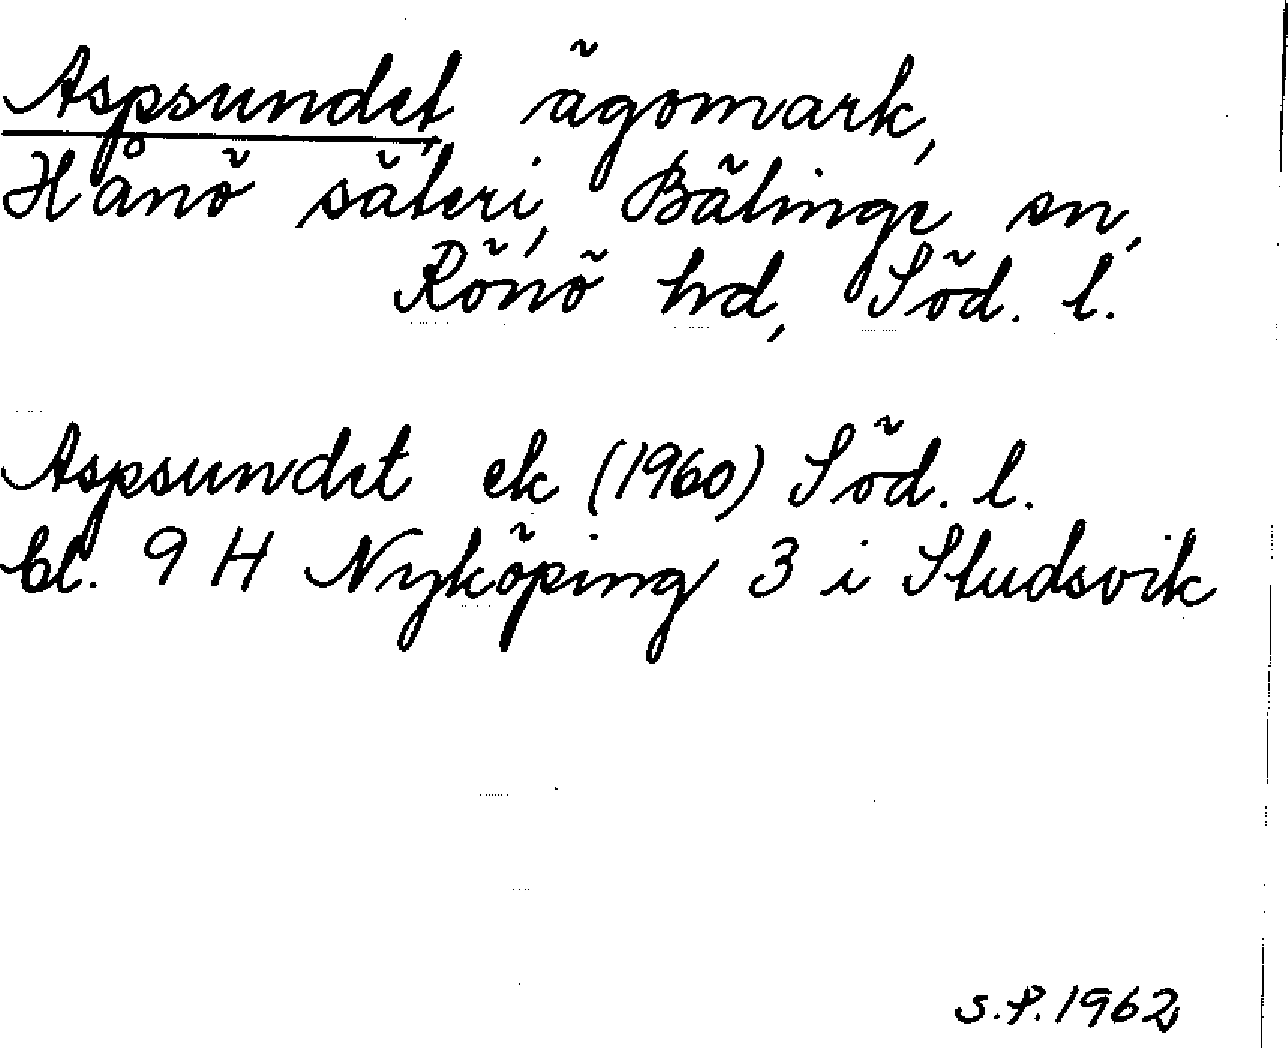 Aspsundet, ägomark,
Hånö säteri, Bälinge sn,
Rönö hd, Söd. l.
Aspsundet ek (1960) Söd. l.
bl. 9 H Nyköping 3 i Studsvik
S.P. 1962